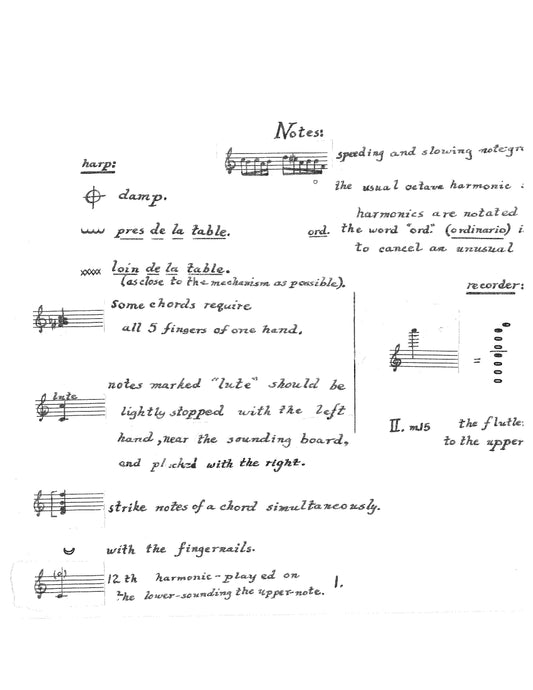 Notes:
harp:
damp.
pres de la table.
loin de la table.
(as close to the mechanism as possible).
Some chords require
all 5 fingers of one hand.
notes marked "lute" should be
lute
lightly stopped with the left
hand, near the sounding board,
and with the right.
strike notes of a chord simultaneously.
with the fingernails.
12th harmonic-played on
the lower-sounding the upper-note.
1.
speeding and slowing
the usual octave harmonic
harmonics are notated
ord. the word "ord." (ordinario) i
to cancel an unusual
recorder:
=
II. m15 the
to the upper